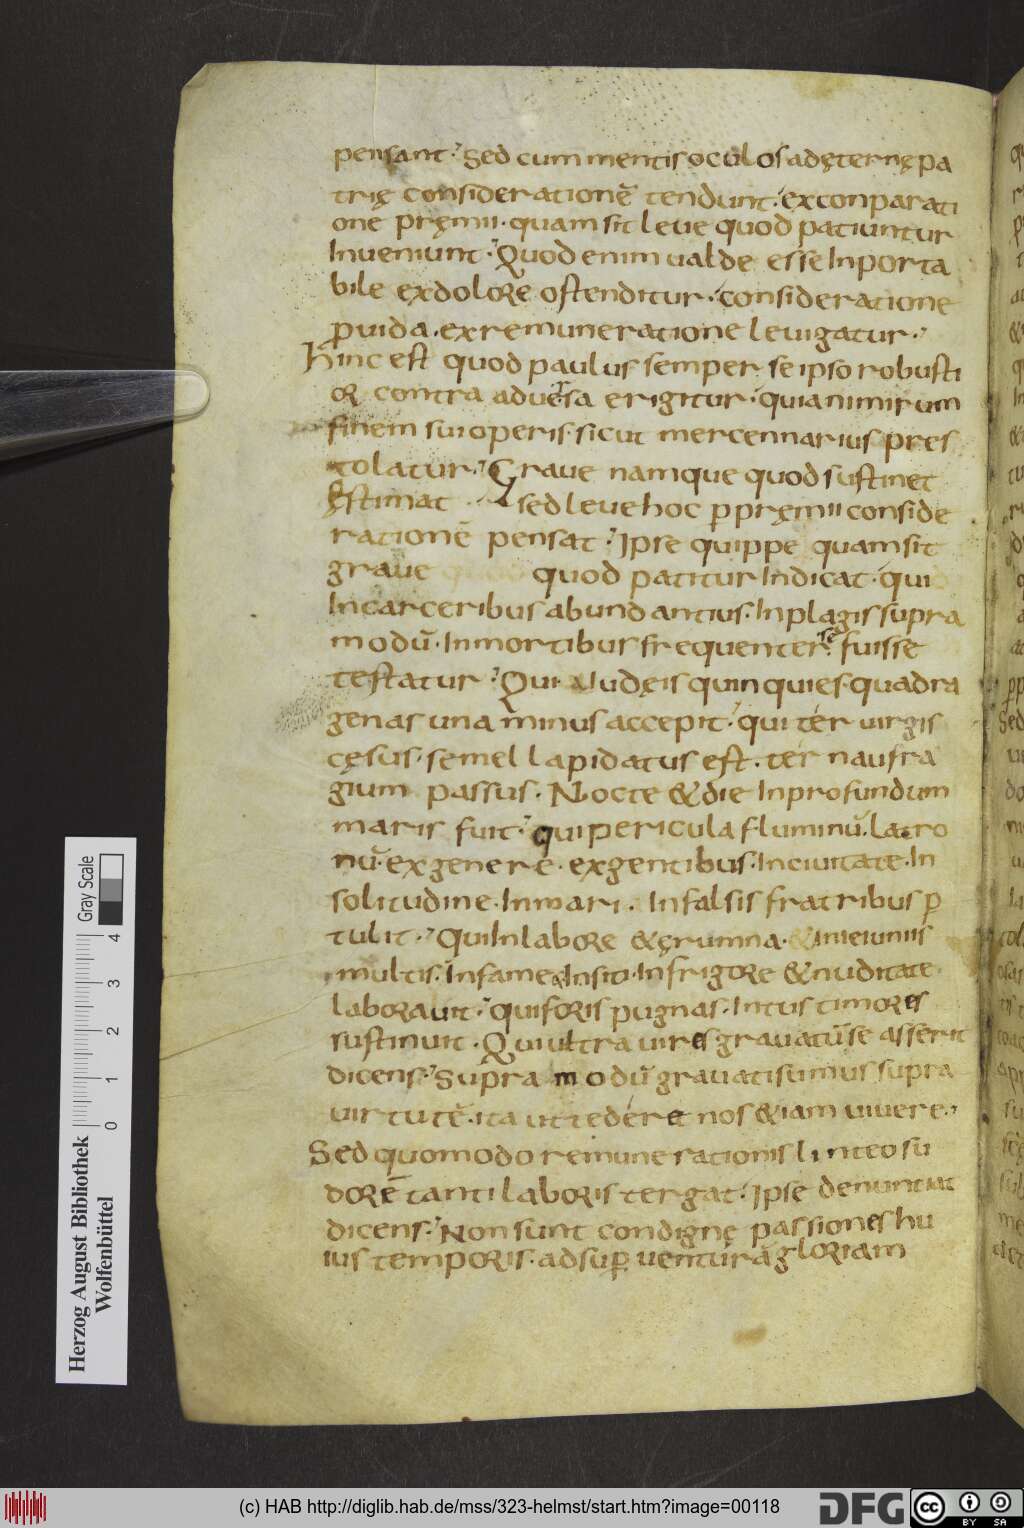 pensant· Sed cum mentis oculos ad ęternę pa
trię considerationē tendunt· ex conparati
one pręmii· quam sit leve quod patiuntur
Inveniunt· Quod enim valde esse Inporta
bile ex dolore ostenditur· consideratione
ꝓvida· ex remuneratione levigatur·
Hinc est quod paulus semper se ipso robusti
or contra adversa erigitur· quia nimirum
finem sui operis· sicut mercennarius pres
tolatur· Grave namque quod sustinet
ęstimat sed leve hoc ꝑ pręmii conside
rationē pensat· Ipse quippe quam sit
grave quod patitur Indicat· qui
In carceribus abundantius· In plagis supra
modū· In mortibus frequenter se fuisse
testatur· Qui Iudęis quinquies· quadra
genas una minus accepit· qui ter virgis
cęsus· semel lapidatus est· ter naufra
gium passus· Nocte & die In profundum
maris fuit· qui pericula fluminū· latro
nū· ex genere· ex gentibus· In civitate· In
solitudine· In mari· In falsis fratribus ꝑ
tulit· qui In labore & ęrumna· & In ieiuniis
multis· In fame & In siti· In frigore & nuditate
laboravit· qui foris pugnas· Intus timores
sustinuit· Qui ultra vires gravatū se asserit
dicens· Supra modū gravati sumus supra
virtutē· ita ut tederet nos &iam vivere·
Sed quomodo remunerationis linteo su
dorē tanti laboris tergat· Ipse denuntiat
dicens· Non sunt condignę passiones hu
ius temporis· ad suꝑventurā gloriam
Herzog August Bibliothek
Wolfenbüttel
0 1 2 3 4
Gray Scale
(c) HAB http://diglib.hab.de/mss/323-helmst/start.htm?image=00118
DFG
cc
BY SA